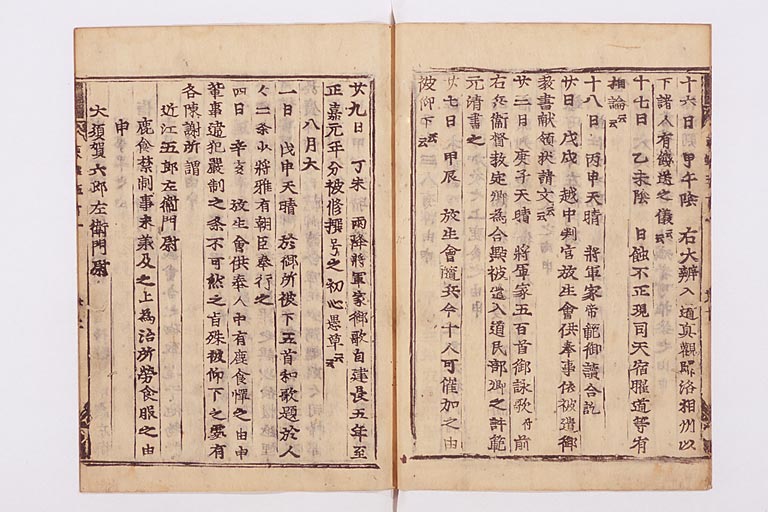 十六日 甲午陰 右大辨入道真觀歸洛相州以
下諸人有餞送之儀云云
十七日 乙未陰 日蝕不正現司天宿曜道等有
相論云云
十八日 丙申天晴 將軍家帝範御讀合訖
廿日 戊戌 越中判官放生會供奉事依被遣御
教書献領状請文云云
廿二日 庚子天晴 將軍家五百首御詠歌 付前
右兵衞督教定卿為合點被遣入道民部卿之許範
元清書之
廿七日 甲辰 放生會隨兵今十人可催加之由
被仰下云云
廿九日 丁未 雨降將軍家御歌自建長五年至
正嘉元年分被修撰号之初心愚草云云
八月大
一日 戊申天晴 於御所被下五首和歌題於人
々二条少將雅有朝臣奉行之
四日 辛亥 放生會供奉人中有鹿食憚之由申
輩事違犯嚴制之条不可然之旨殊被仰下之處有
各陳謝所謂
近江五郎左衞門尉
鹿食禁制事未兼及之上為治所勞食服之由
申
大須賀六郎左衞門尉